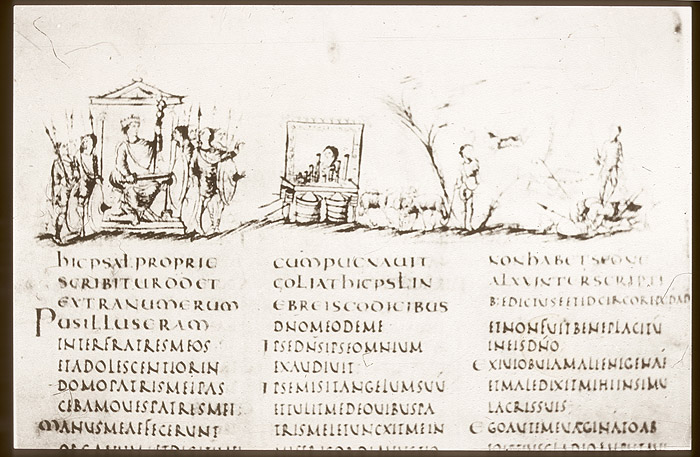 HICPSALPROPRIE
SCRIBITURDDET
EXTRANUMERUM
PUSILLUSERAM
INTERFRATRESMEOS
ETADOLESCENTIORIN
DOMOPATRISMEIPAS
CEBAMOUESPATRISMEI;
MANUSMEAEFECERUNT
CUMPUGNAUIT
GOLIATHICPSLIN
EBREISCODICIBUS
DNOMEODEME
IPSEDNSIPSEOMNIUM
EXAUDIUIT
IPSEMISITANGELUMSUU
ETTULITMEDEOUIBUSPA
TRISMEIETUNCXITMEIN
NONHABETSEDNE
ETNONFUITBENEPLACITU
INEISDNO
EXIUIOBUIAMALIENIGENAE
ETMALEDIXITMIHIINSIMU
LACRISSUIS
EGOAUTEMEUAGINATOAB